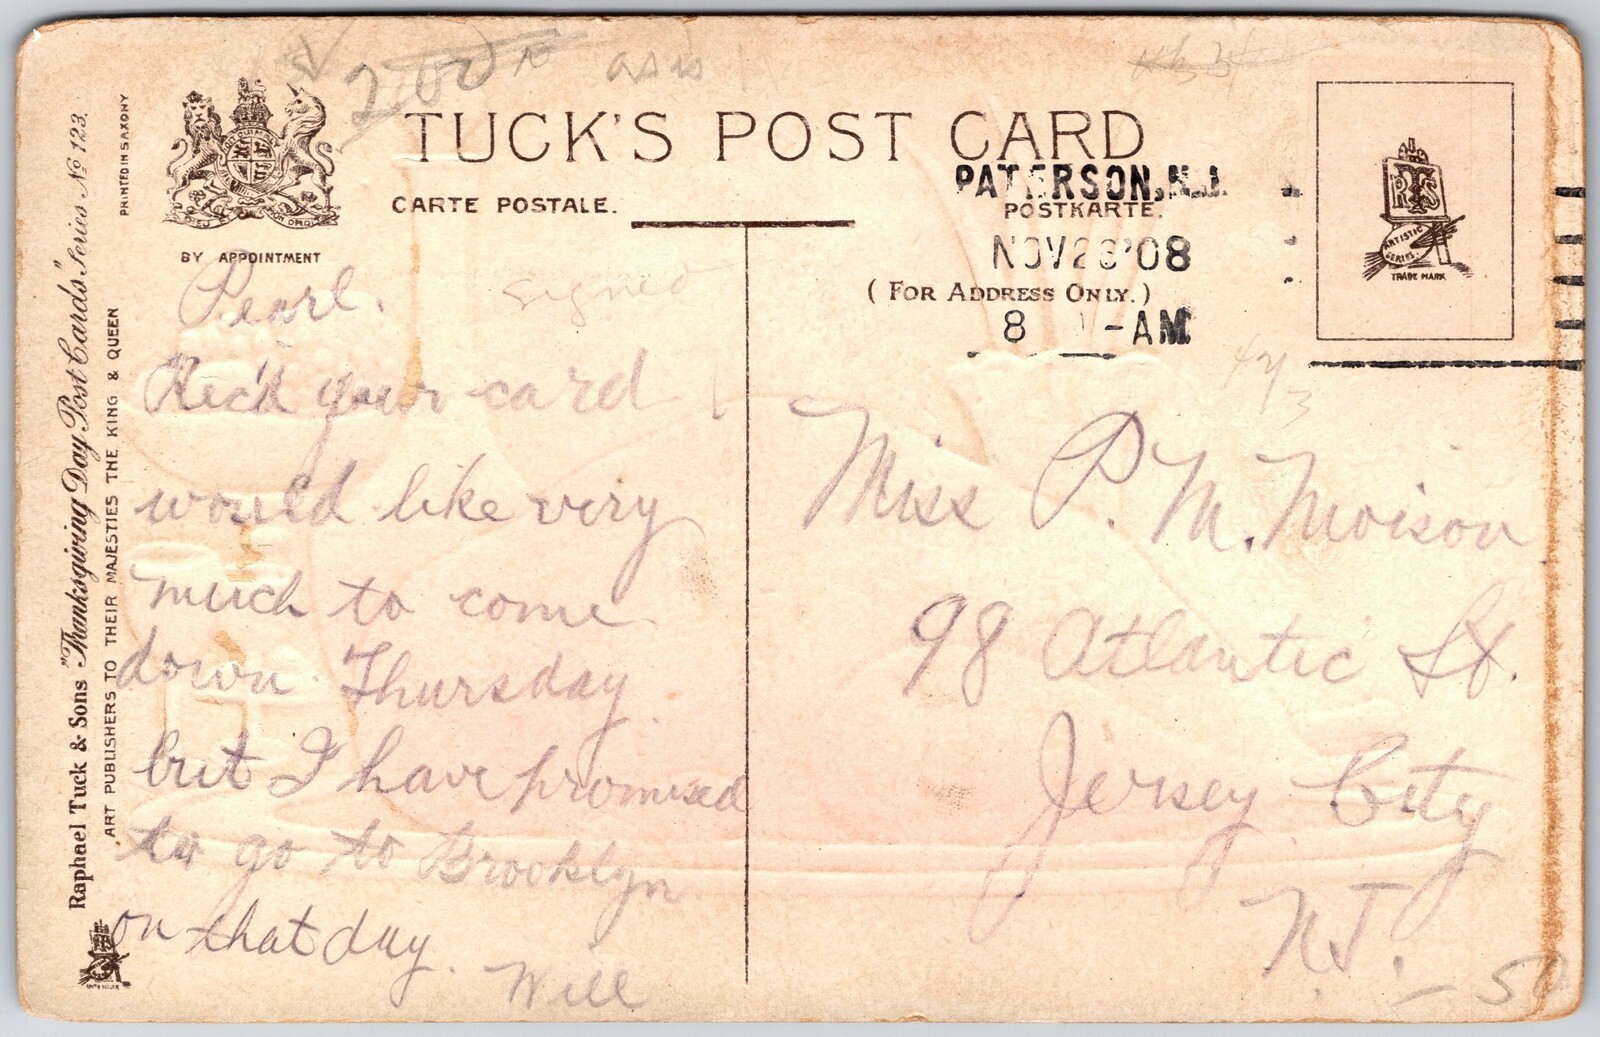 200
as is
TUCK'S POST CARD
CARTE POSTALE.
PATERSON, N.J.
POSTKARTE.
NOV 26 '08
(FOR ADDRESS ONLY.)
8 -AM
BY APPOINTMENT
PRINTED IN SAXONY
Raphael Tuck & Sons "Thanksgiving Day Post Cards" Series No 123.
ART PUBLISHERS TO THEIR MAJESTIES THE KING & QUEEN
RTS
ARTISTIC
SERIES.
TRADE MARK
signed
Pearl.
Rec'd your card
would like very
much to come
down Thursday.
but I have promised
to go to Brooklyn
on that day.
Will
Miss P. M. Moison
98 Atlantic St.
Jersey City
N.J.
- 50